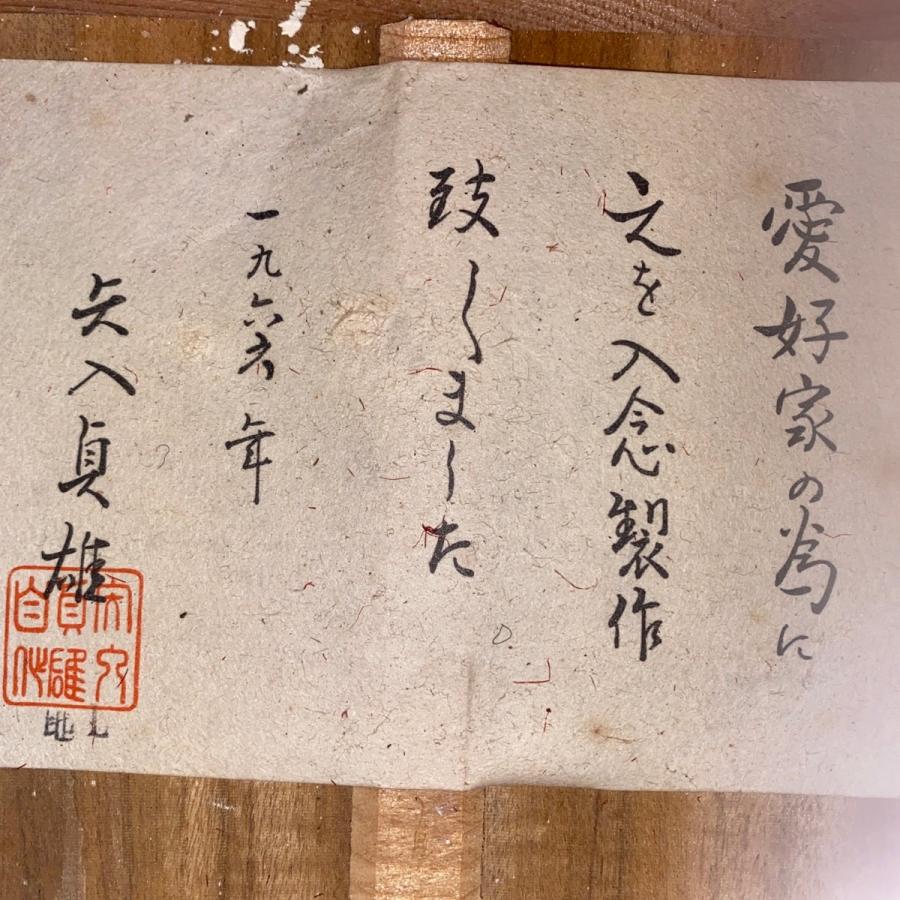 愛好家の為に
之を入念製作
致しました
一九六六年
矢入貞雄
矢入
貞雄
自作